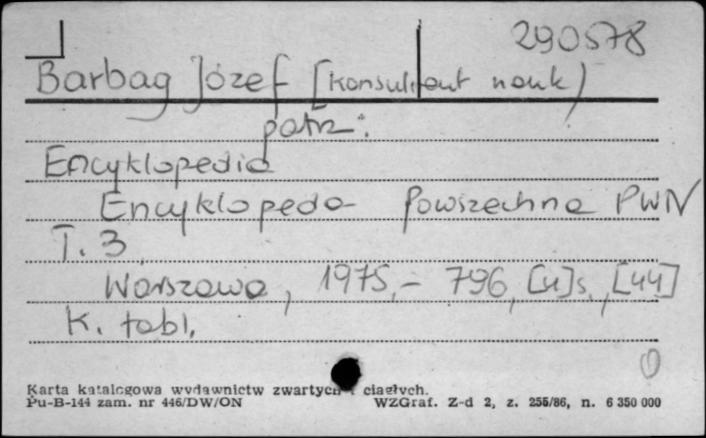 290578
Barbag Józef [konsultant nauk)
patrz:
Encyklopedia
Encyklopedia Powszechna PWN
T. 3
Warszawa, 1975.- 796, [4]s., [44]
K. tabl.
Karta katalogowa wydawnictw zwartych i ciągłych.
Pu-B-144 zam. nr 446/DW/ON WZGraf. Z-d 2, z. 255/86, n. 6 350 000